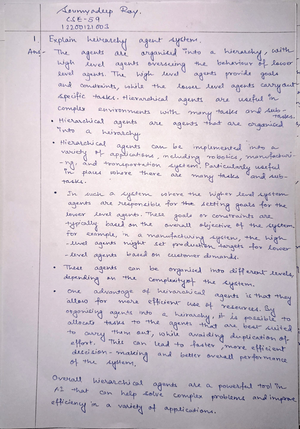 Soumyadeep Ray.
CSE-59
12200121003
1. Explain heirarchy agent system.
Ans- The agents are organised into a hierarchy, with
high level agents overseeing the behaviour of lower
level agents. The high level agents provide goals
and constraints, while the lower level agents carry out
specific tasks. Hierarchical agents are useful in
complex environments with many tasks and sub-
tasks.
• Hierarchical agents are agents that are organised
into a heirarchy.
• Hierarchical agents can be implemented into a
variety of application, including robotics, manufacturi-
-ng, and transportation system. Particularly useful
in place where there are many tasks and sub-
tasks.
• In such a system where the higher level system
agents are responsible for the setting goals for the
lower level agents. These goals or constraints are
typically based on the overall objective of the system
for example, in a manufacturing system, the high
-level agents might set production targets for lower
-level agents based on customer demands.
• These agents can be organised into different levels,
depending on the complexity of the system.
• One advantage of heirarchical agents is that they
allow for more efficient use of resources. By
organising agents into a heirarchy, it is possible to
allocate tasks to the agents that are best suited
to carry them out, while avoiding duplication of
effort. This can lead to faster more efficient
decision-making and better overall performance
of the system.
Overall hierarchical agents are a powerful tool in
AI that can help solve complex problems and improve
efficiency in a variety of applications.